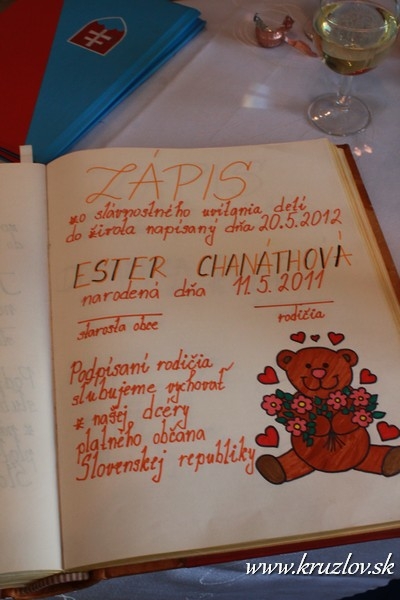 ZÁPIS
zo slávnostného uvítania detí
do života napísaný dňa 20.5.2012
ESTER CHANÁTHOVÁ
narodená dňa 11.5.2011
starosta obce
rodičia
Podpísaní rodičia
sľubujeme vychovať
z našej dcery
platného občana
Slovenskej republiky
www.kruzlov.sk